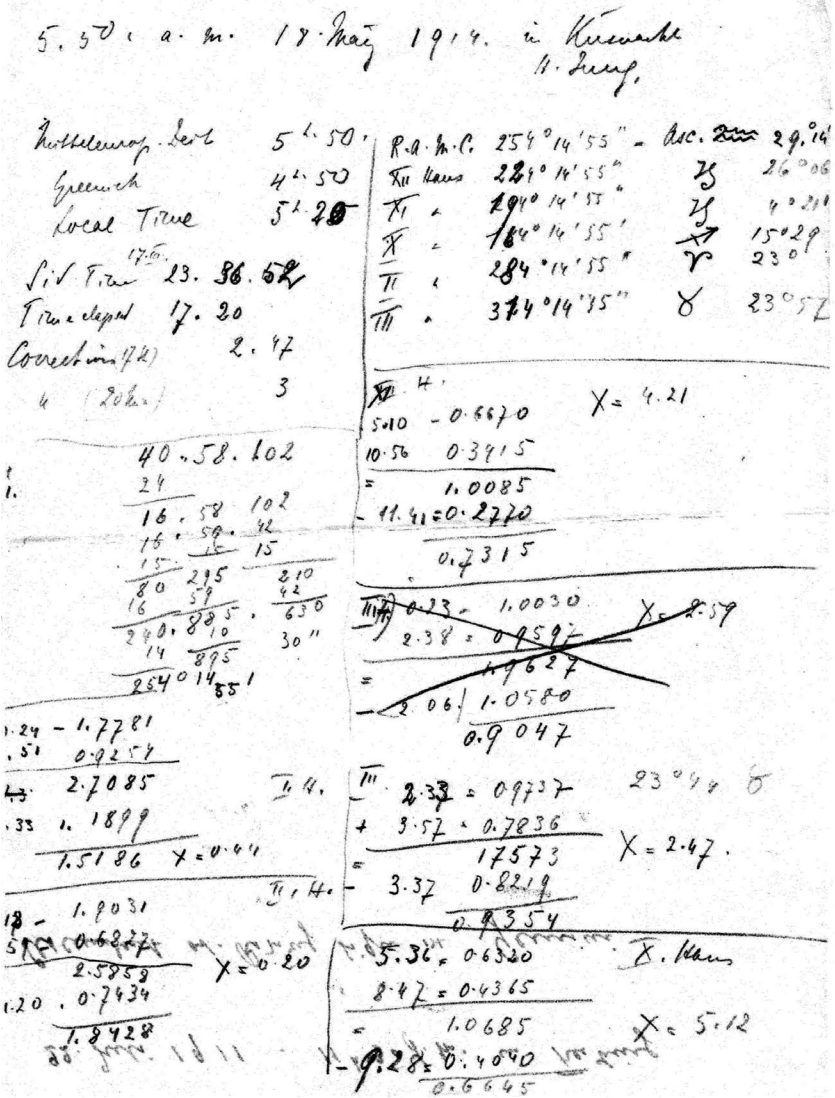 5.50 a.m. 18. März 1914. in Küsnacht
H. Jung.
Mitteleurop. Zeit 5 h. 50.
Greenwich 4 h. 50
Local Time 5 h. 25
Sid Time 17.III. 23. 36. 52
Time elapsed 17. 20
Correction (17h) 2. 47
" (20 min) 3
40. 58. 102
24
16. 58 102
16. 59. 42
15 15 15
80 295 210
16 59 42
240. 885. 630
14 10 30"
895
254° 14' 55'
1.24 - 1.7781
.51 0.9254
2.7085
.33 1. 1899
1.5186 X = 0.44
II. H.
18 - 1.9031
0.6827
2.5858 X = 0.20
1.20 . 0.7434
1.8428
R.A.M.C. 254° 14' 55" - Asc. 29.° 14
XII Haus 224° 14' 55" ♑ 26° 06
XI " 194° 14' 55" ♑ 4° 21
X " 164° 14' 55' ♐ 15° 29
II " 284° 14' 55" ♈ 23°
III " 314° 14' 35" ♉ 23° 57
XI H.
5.10 - 0.6670 X = 4.21
10.56 0.3415
= 1.0085
- 11.41 = 0.2770
0.7315
III) 0.23 - 1.0030 X = 2.59
2.38 = 0.9597
= 1.9627
- 2.06 / 1.0580
0.9047
III 2.33 = 0.9737 23° 44 ♉
+ 3.57 = 0.7836
= 17573 X = 2.47.
II. H. - 3.37 0.8219
0.9354
5.36 = 0.6320 X. Haus
8.47 = 0.4365
= 1.0685 X = 5.12
- 9.28 = 0.4040
0.6645